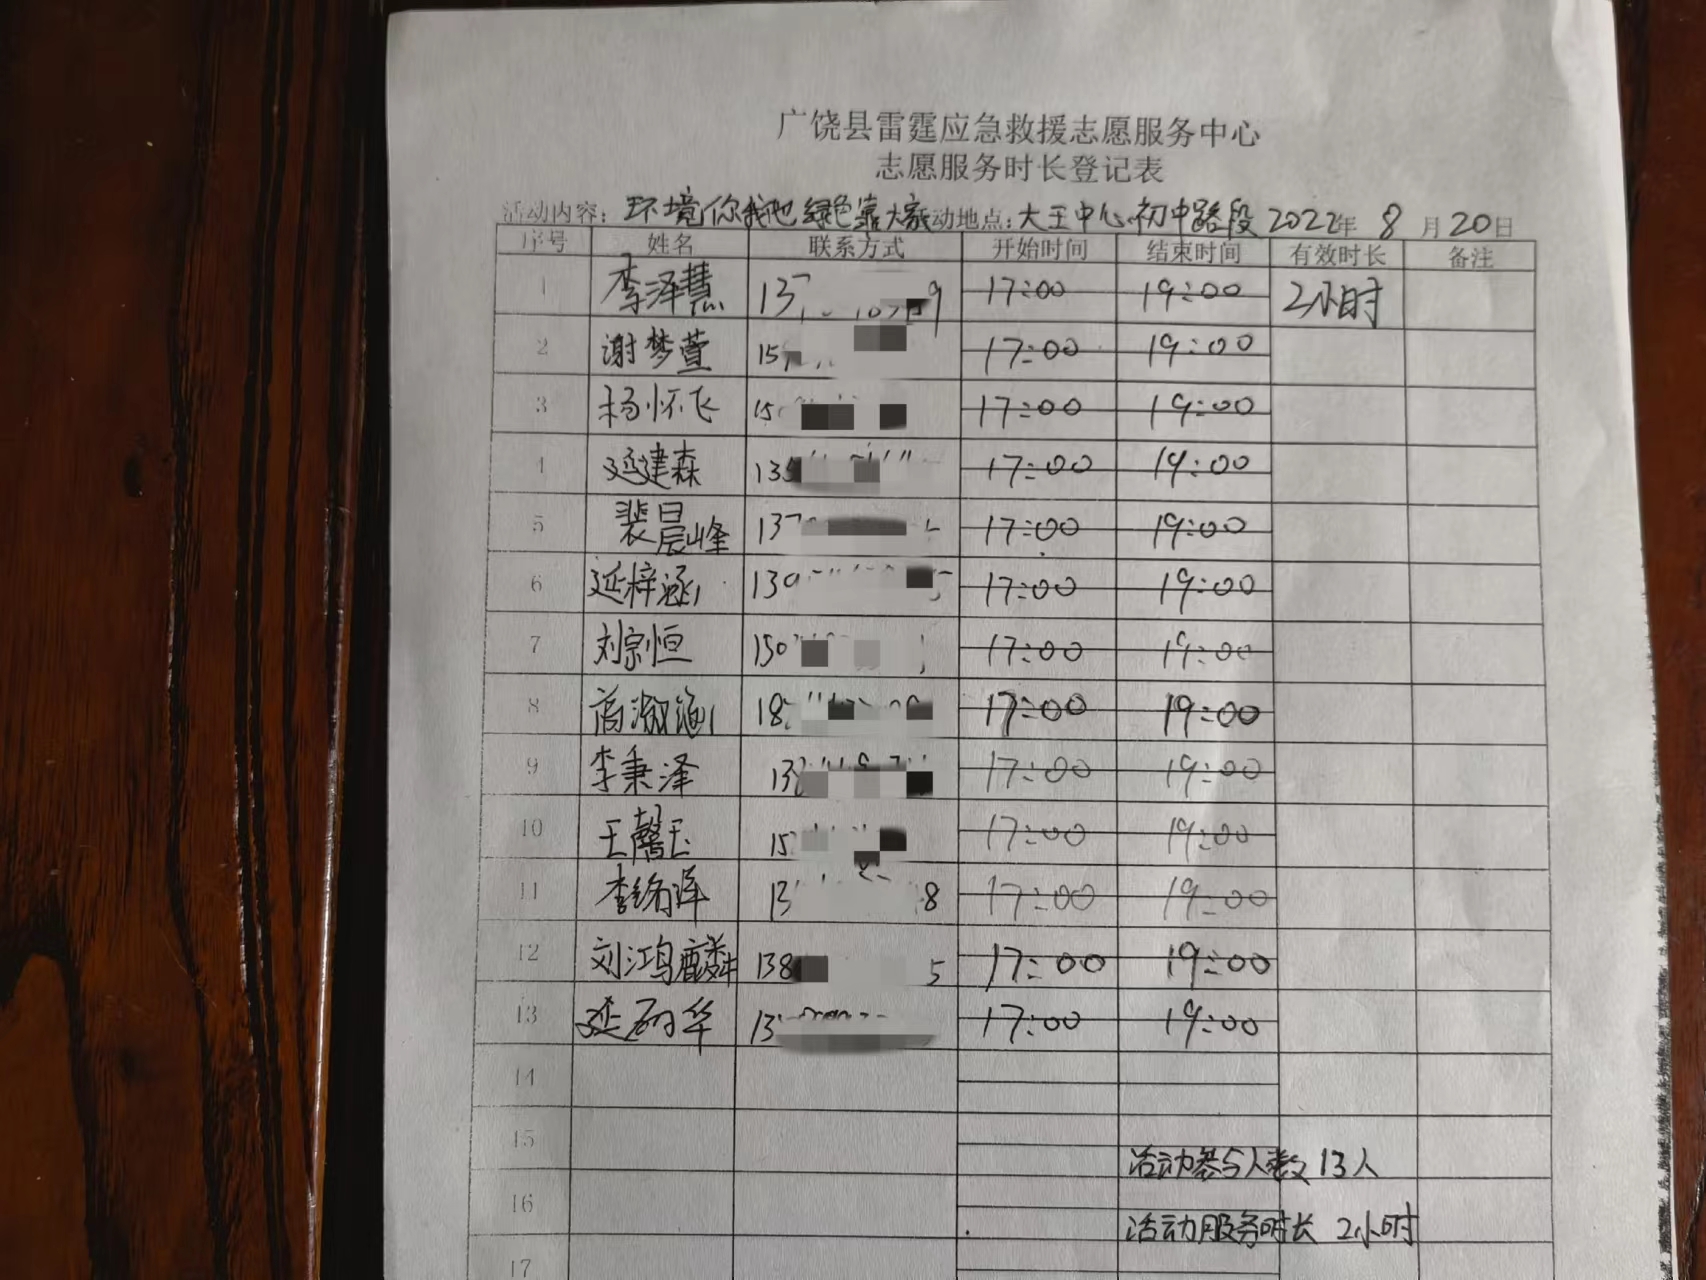 广饶县雷霆应急救援志愿服务中心
志愿服务时长登记表
活动内容：环境你我他 绿色靠大家 活动地点：大王中心初中路段 2022年 8月20日
序号 姓名 联系方式 开始时间 结束时间 有效时长 备注
1 李泽慧 137 9 17:00 19:00 2小时
2 谢梦萱 15 17:00 19:00
3 杨怀飞 15 17:00 19:00
4 延建森 133 17:00 19:00
5 裴晨峰 137 17:00 19:00
6 延梓涵 130 5 17:00 19:00
7 刘宗恒 150 17:00 19:00
8 高淑涵 18 17:00 19:00
9 李秉泽 13 17:00 19:00
10 王馨玉 15 17:00 19:00
11 李 泽 13 8 17:00 19:00
12 刘鸿麟 138 5 17:00 19:00
13 延 华 13 17:00 19:00
14
15
活动参与人数 13人
16
活动服务时长 2小时
17